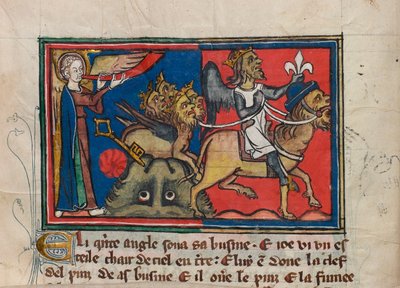 Li qinte angle sona sa busine · E ioe vi un es
teile chair de ciel en tre · E luy e done la clef
del puiz de as busine E il ouve le puiz E la fumee